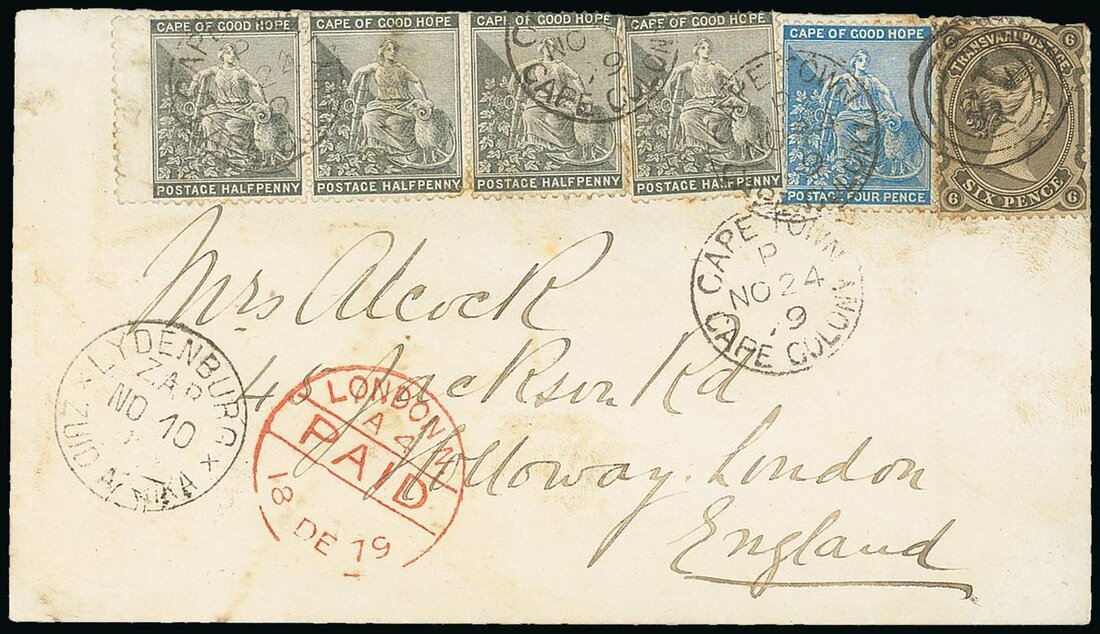 CAPE OF GOOD HOPE
POSTAGE HALFPENNY
CAPE OF GOOD HOPE
POSTAGE HALFPENNY
CAPE OF GOOD HOPE
POSTAGE HALFPENNY
CAPE OF GOOD HOPE
POSTAGE HALFPENNY
CAPE OF GOOD HOPE
POSTAGE FOUR PENCE
6 TRANSVAAL POSTAGE 6
6 SIX PENCE 6
NO
9
CAPE COLONY
CAPE TOWN
CAPE TOWN
P
NO 24
79
CAPE COLONY
Mrs Alcock
48 Jackson Rd
Holloway London
England
LYDENBURG
ZAR
NO 10
ZUID AFRIKA
LONDON N
A 4
PAID
18 DE 79